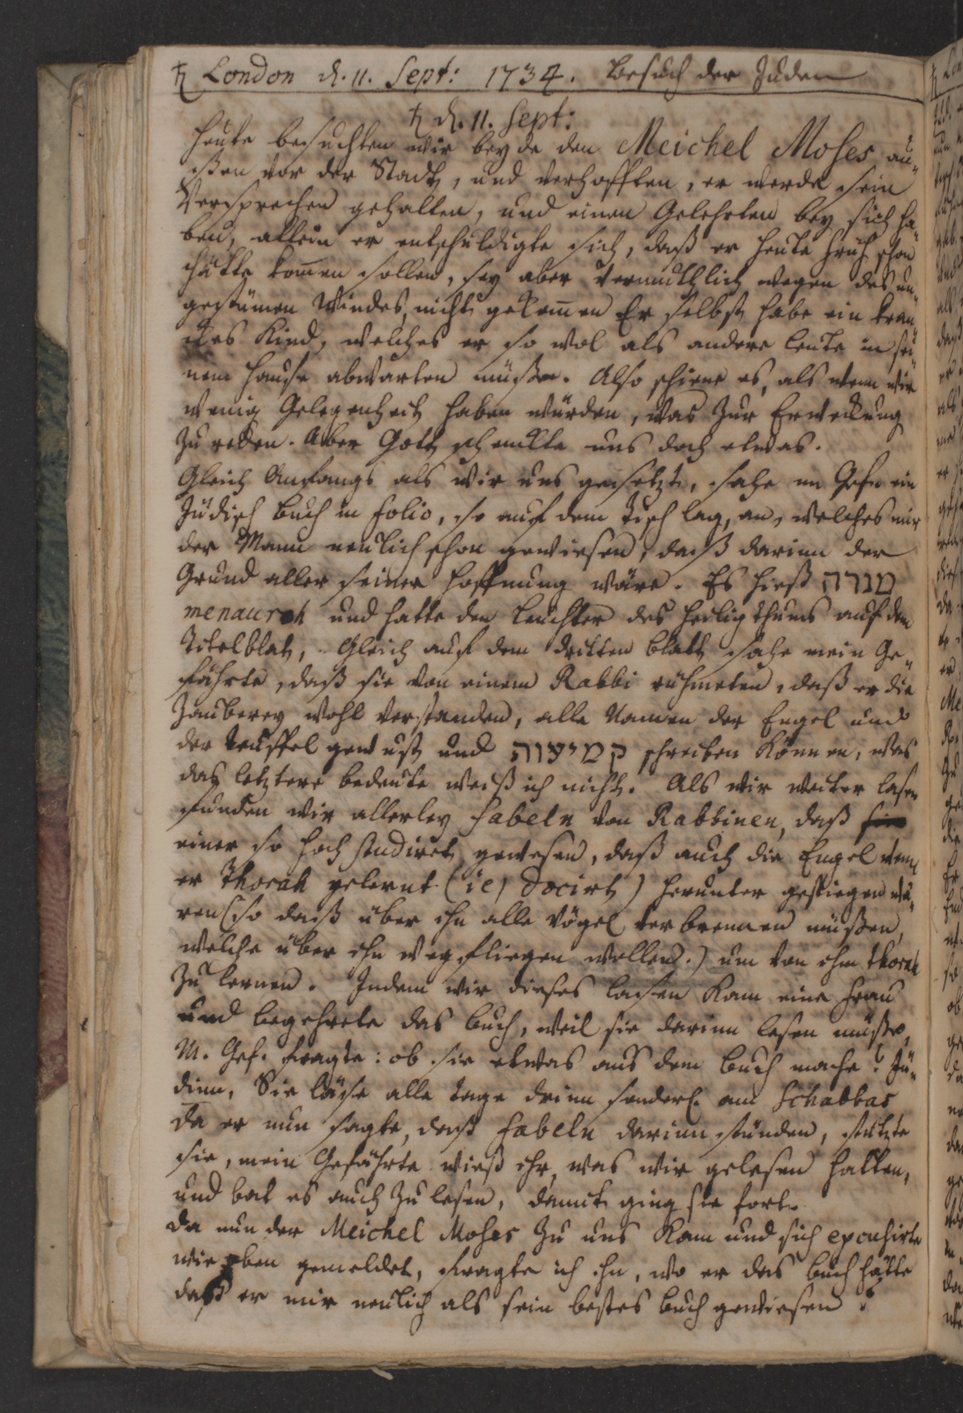 ♄ London d. 11. Sept: 1734. Besuch der Juden
♄ d. 11. Sept:
Heute besuchten wir beyde den Meichel Moses au¬
ßen vor der Stadt, und verhofften, er werde sein
Versprechen gehalten, und einen Gelehrten bey sich ha¬
ben, allein er entschuldigte sich, daß er heute früh schon
hätte kom̅en sollen, sey aber vermuthlich wegen des un¬
gestümen Windes nicht gekom̅en Er selbst habe ein kran¬
kes Kind, welches er so wol als andere Leute in sei¬
nem Hause abwarten müße. Also schiene es, als wenn wir
wenig Gelegenheit haben würden, was zur Erweckung
zu reden. Aber Gott schenckte uns doch etwas.
Gleich Anfangs als wir uns gesetzt, sahe m Gef. ein
Jüdisch Buch in folio, so auf dem Tisch lag, an, welches mir
der Mann neulich schon gewiesen, daß darinn der
Grund aller seiner Hoffnung wäre. Es hieß מנרה
menaurah und hatte den Leuchter des Heiligthums auf dem
Titelblat, Gleich auf dem dritten Blatt sahe mein Ge¬
fährte, daß sie von einem Rabbi rühmeten, daß er die
Zauberey wohl verstanden, alle Namen der Engel und
der Teuffel gewust und קמיעות schreiben können, was
das letztere bedeute weiß ich nicht. Als wir weiter lasen
funden wir allerley Fabeln von Rabbinen, daß
einer so hoch studiret gewesen, daß auch die Engel wenn
er Thorah gelernt (ie) docirt) herunter gestiegen wä¬
ren (so daß über ihn alle Vögel verbrennen müßen,
welche über ihn wegfliegen wollen.) um von ihm Thorah
zu lernen. Indem wir dieses lasen kam eine Frau
und begehrete das Buch, weil sie darinn lesen müße,
M. Gef. fragte: ob sie etwas aus dem Buch mache? Jü¬
dinn, Sie läse alle Tage drinn sonderl. am Schabbas
da er nun sagte, daß Fabeln darinn stünden, stutzte
sie, mein Gefährte wieß ihr, was wir gelesen hatten,
und bat es auch zu lesen, damit ging sie fort.
da nun der Meichel Moses zu uns kam und sich excusirte
wie oben gemeldet, fragte ich ihn, wo er das Buch hätte
daß er mir neulich als sein bestes Buch gewiesen?